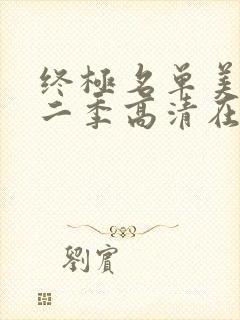 终極名单美
二季高清在
劉賓